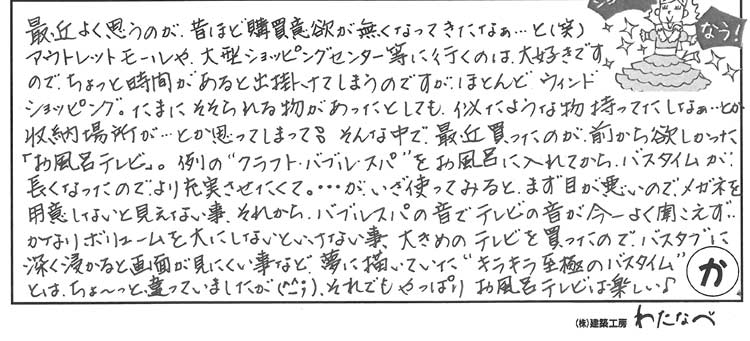 最近よく思うのが、昔ほど購買意欲が無くなってきたなぁ…と(笑)
アウトレットモールや、大型ショッピングセンター等に行くのは、大好きです
ので、ちょっと時間があると出掛けてしまうのですが、ほとんど ウィンド
ショッピング。たまに そそられる物があったとしても、似たような物 持ってたしなぁ…とか
収納場所が…とか思ってしまって。そんな中で、最近買ったのが、前から欲しかった
「お風呂テレビ」。例の"クラフト・バブル・スパ"をお風呂に入れてから、バスタイムが
長くなったのでより充実させたくて。・・・が、いざ使ってみると、まず目が悪いのでメガネを
用意しないと見えない事、それから、バブルスパの音でテレビの音が今一よく聞こえず…
かなりボリュームを大にしないといけない事、大きめのテレビを買ったので、バスタブに
深く浸かると画面が見にくい事など、夢に描いていた"キラキラ至極のバスタイム"
とは、ちょ〜っと違っていましたが(^^;)、それでもやっぱり お風呂テレビは楽しい♪
か
なう!
(株)建築工房 わたなべ